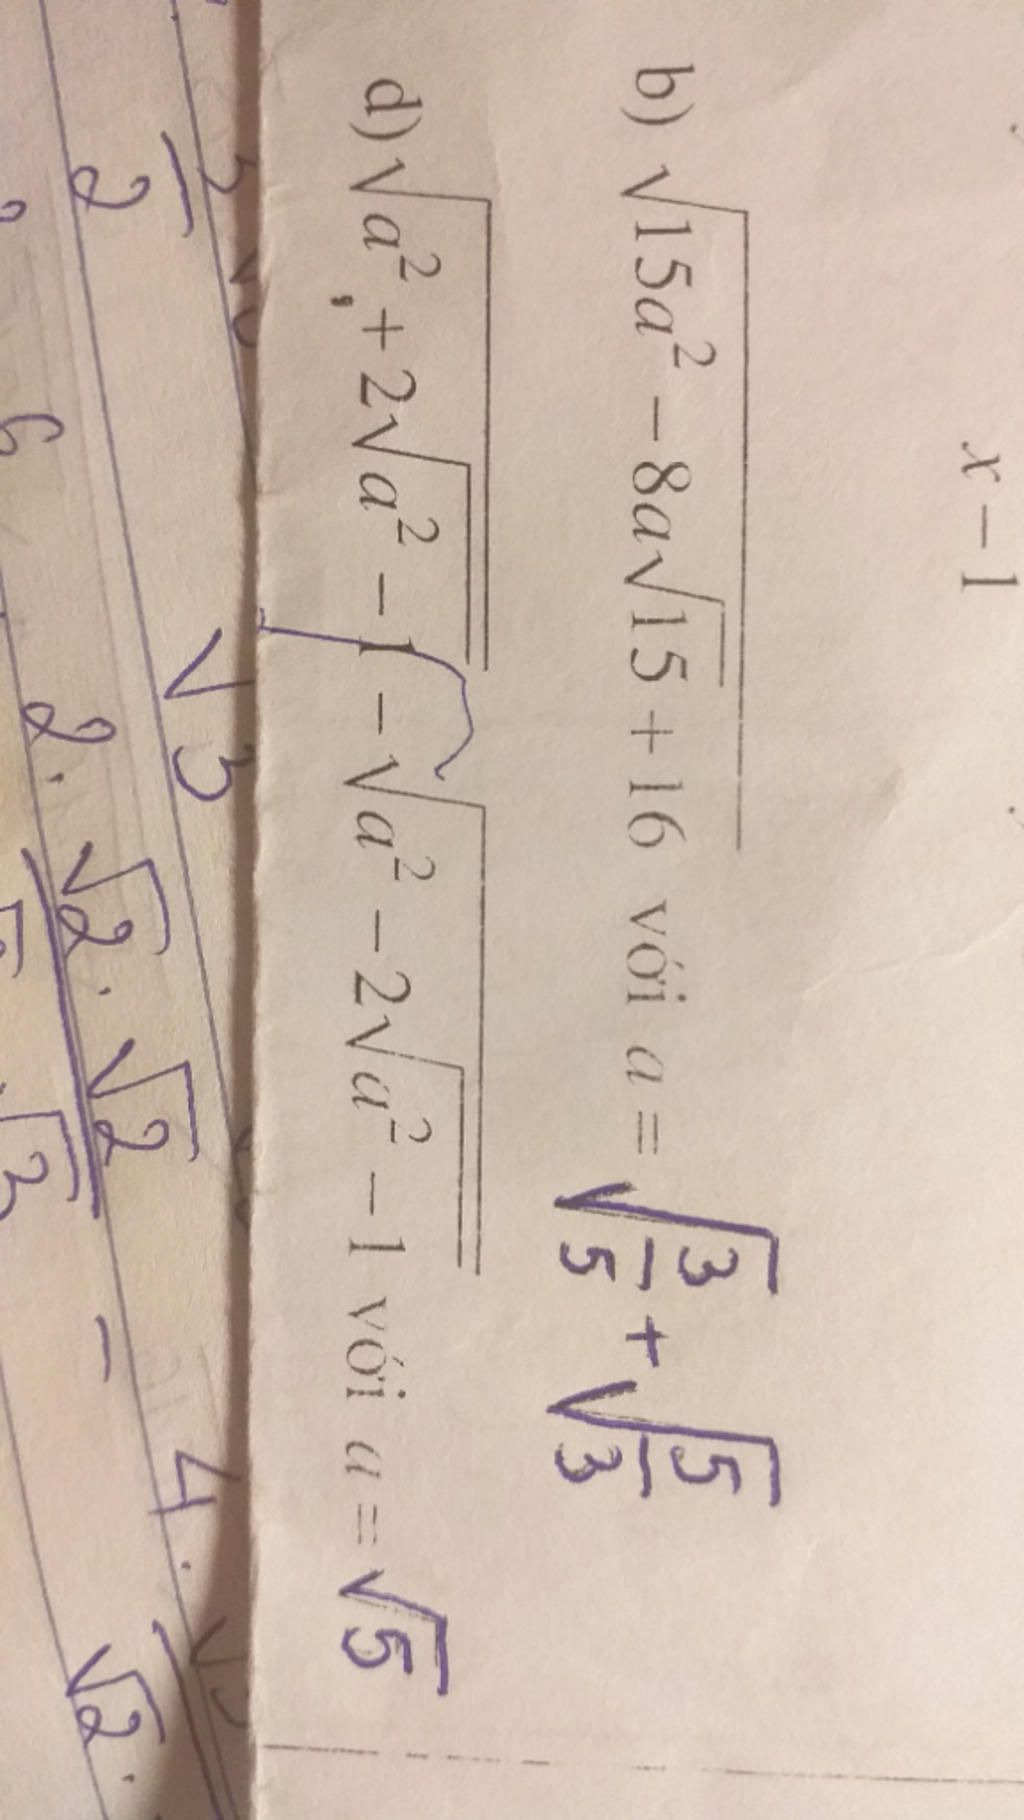 x − 1
b) √(15a² − 8a√15 + 16) với a = √(3/5) + √(5/3)
d) √(a² + 2√(a² − 1)) − √(a² − 2√(a² − 1)) với a = √5
√3
2
2 . √2 . √2 − 4 .
√3
√2 .
6